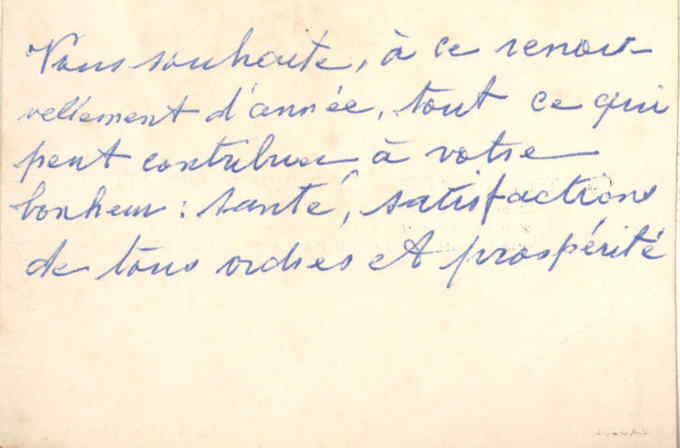 Vous souhaite, à ce renou-
vellement d'année, tout ce qui
peut contribuer à votre
bonheur : santé, satisfactions
de tous ordres et prospérité